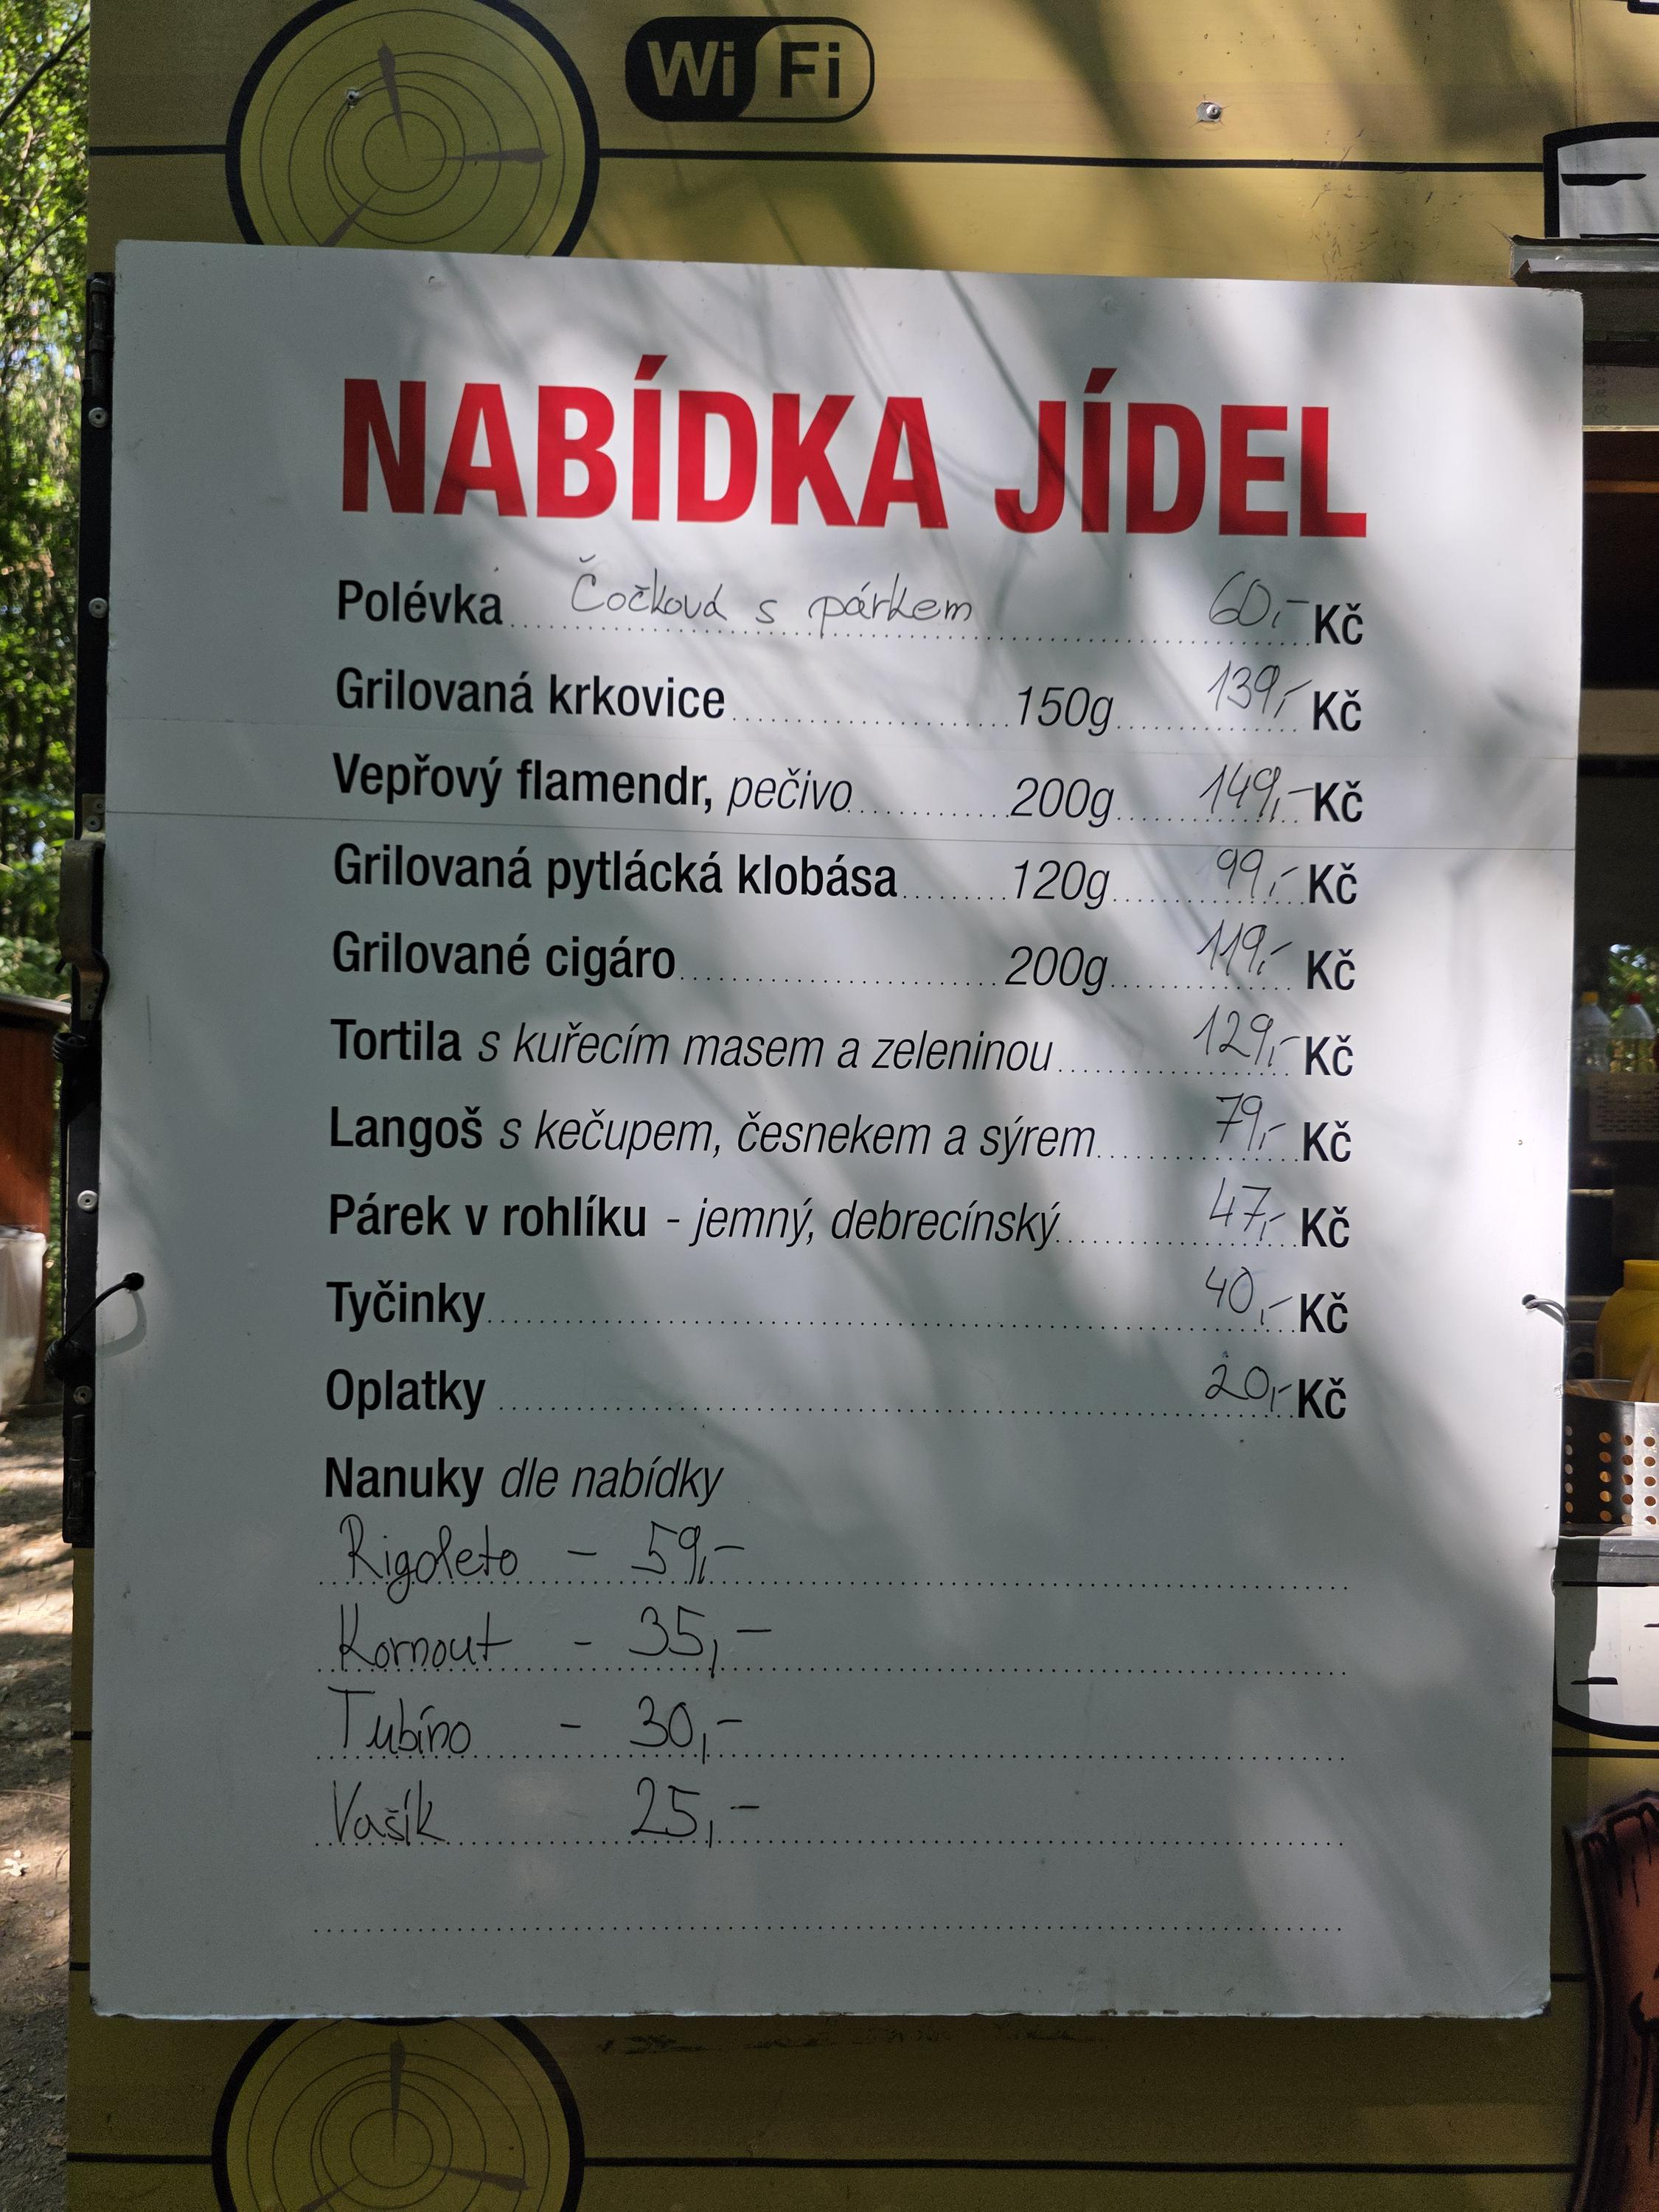 WiFi
NABÍDKA JÍDEL
Polévka Čočková s párkem 60,- Kč
Grilovaná krkovice 150g 139,- Kč
Vepřový flamendr, pečivo 200g 149,- Kč
Grilovaná pytlácká klobása 120g 99,- Kč
Grilované cigáro 200g 119,- Kč
Tortila s kuřecím masem a zeleninou 129,- Kč
Langoš s kečupem, česnekem a sýrem 79,- Kč
Párek v rohlíku - jemný, debrecínský 47,- Kč
Tyčinky 40,- Kč
Oplatky 20,- Kč
Nanuky dle nabídky
Rigoleto - 59,-
Kornout - 35,-
Tubíno - 30,-
Vašík 25,-